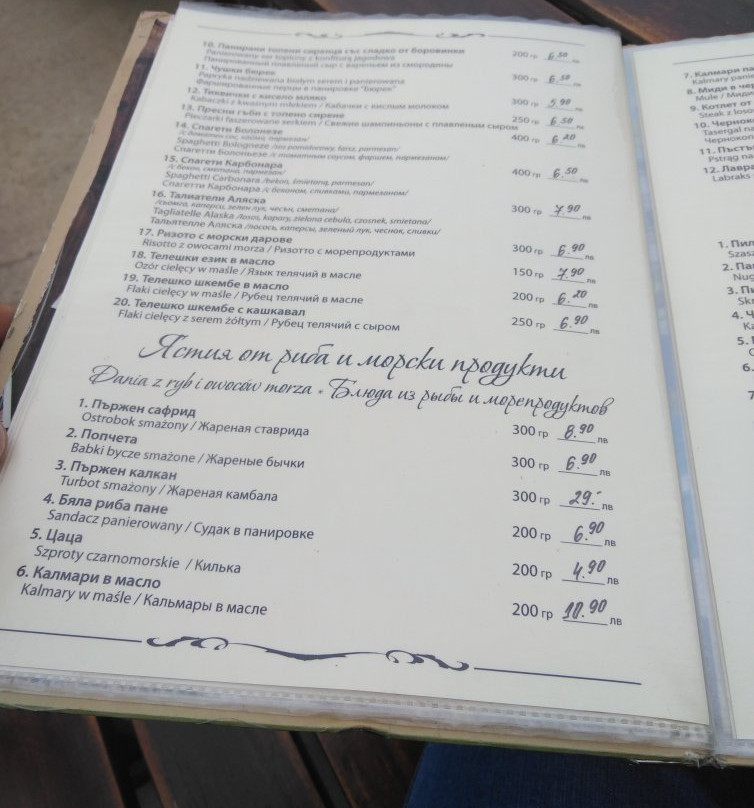 10. Панирани топени сиренца със сладко от боровинки 200 гр 6.50 лв
Panierowany ser topiony z konfiturą jagodową
Панированный плавленый сыр с вареньем из смородины
11. Чушки бюрек 300 гр 6.50 лв
Papryka nadziewana białym serem i panierowana
Фаршированные перцы в панировке "Бюрек"
12. Тиквички с кисело мляко 300 гр 5.90 лв
Kabaczki z kwaśnym mlekiem / Кабачки с кислым молоком
13. Пресни гъби с топено сирене 250 гр 6.50 лв
Pieczarki faszerowane serkiem / Свежие шампиньоны с плавленым сыром
14. Спагети Болонезе 400 гр 6.20 лв
/с доматен сос, кайма, пармезан/
Spaghetti Bolognese /sos pomidorowy, farsz, parmezan/
Спагетти Болоньезе /с томатным соусом, фаршем, пармезаном/
15. Спагети Карбонара 400 гр 6.50 лв
/с бекон, сметана, пармезан/
Spaghetti Carbonara /bekon, śmietaną, parmesan/
Спагетти Карбонара /с беконом, сливками, пармезаном/
16. Талиатели Аляска 300 гр 7.90 лв
/сьомга, каперси, зелен лук, чесън, сметана/
Tagliatelle Alaska /łosos, kapary, zielona cebula, czosnek, smietana/
Тальятелле Аляска /лосось, каперсы, зеленый лук, чеснок, сливки/
17. Ризото с морски дарове 300 гр 6.90 лв
Risotto z owocami morza / Ризотто с морепродуктами
18. Телешки език в масло 150 гр 7.90 лв
Ozór cielęcy w maśle / Язык телячий в масле
19. Телешко шкембе в масло 200 гр 6.20 лв
Flaki cielęcy w maśle / Рубец телячий в масле
20. Телешко шкембе с кашкавал 250 гр 6.90 лв
Flaki cielęcy z serem żółtym / Рубец телячий с сыром
Ястия от риба и морски продукти
Dania z ryb i owoców morza • Блюда из рыбы и морепродуктов
1. Пържен сафрид 300 гр 8.90 лв
Ostrobok smażony / Жареная ставрида
2. Попчета 300 гр 6.90 лв
Babki bycze smażone / Жареные бычки
3. Пържен калкан 300 гр 29.- лв
Turbot smażony / Жареная камбала
4. Бяла риба пане 200 гр 6.90 лв
Sandacz panierowany / Судак в панировке
5. Цаца 200 гр 4.90 лв
Szproty czarnomorskie / Килька
6. Калмари в масло 200 гр 10.90 лв
Kalmary w maśle / Кальмары в масле
7. Калмари па
Kalmary pan
8. Миди в чер
Mule / Миди
9. Котлет от
Steak z łoso
10. Чернок
Tasergal
Чернокоп
11. Пъстъ
Pstrąg na
12. Лавра
Labraks
1. Пил
Szasz
2. Па
Nug
3. Пи
Sk
4. Ч
Ka
5.
6.
7